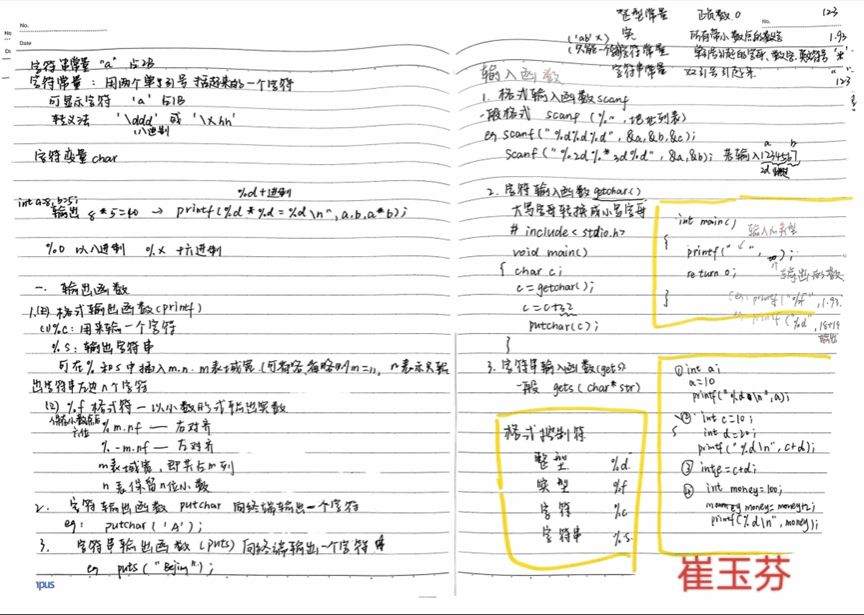 No.
Date
字符串常量 "a" 占2B
字符常量：用两个单引号括起来的一个字符
可显示字符 'a' 占1B
转义法 '\ddd' 或 '\xhh'
八进制
字符变量 char
%d 十进制
int a=8, b=5;
输出 8*5=40 → printf(%d*%d=%d\n", a,b,a*b);
%o 以八进制 %x 十六进制
一. 输出函数
格式输出函数(printf)
(1)%c：用来输一个字符
%s：输出字符串
可在%和s中插入m.n. m表示域宽
出字符串左边n个字符
(2) %f 格式符一以小数形式输出实数
保留小数点后六位
%m.nf — 右对齐
%-m.nf — 左对齐
m表域宽，即共占m列
n表保留n位小数
2. 字符输出函数 putchar 向终端输出一个字符
eg: putchar('A');
3. 字符串输出函数(puts) 向终端输出一个字符串
eg puts("Beijing");
npus
整型常量 正负数.0 123
No.
('ab' ×) 实 所有带小数点的数字 1.93
字符常量 单引号引起的字母、数字、英文符号 '*'
字符串常量 双引号引起来 " "
123
输入函数
1. 格式输入函数scanf
一般格式 scanf (%"，地址列表)
eg scanf("%d%d%d", &a,&b,&c);
a b
scanf("%2d%*3d%d", &a,&b); 若输入1234567
2d
2. 字符输入函数getchar()
大写字母转换成小写字母
# include<stdio.h>
void main()
{ char c;
c=getchar();
c=c+32
putchar(c);
}
int main()
输入的类型
{
printf(" ", );
return 0; 输出的数
}
eg: printf("%f", 1.93.
eg: printf("%d", 18+19
输出
3. 字符串输入函数(gets)
一般 gets(char*str)
格式控制符
整型 %d
实型 %f
字符 %c
字符串 %s.
① int a;
a=10
printf("%d\n",a);
② int c=10;
int d=20;
printf("%d\n", c+d);
③ int e=c+d;
④ int money=100;
money=money+2;
printf(%d\n", money);
崔玉芬